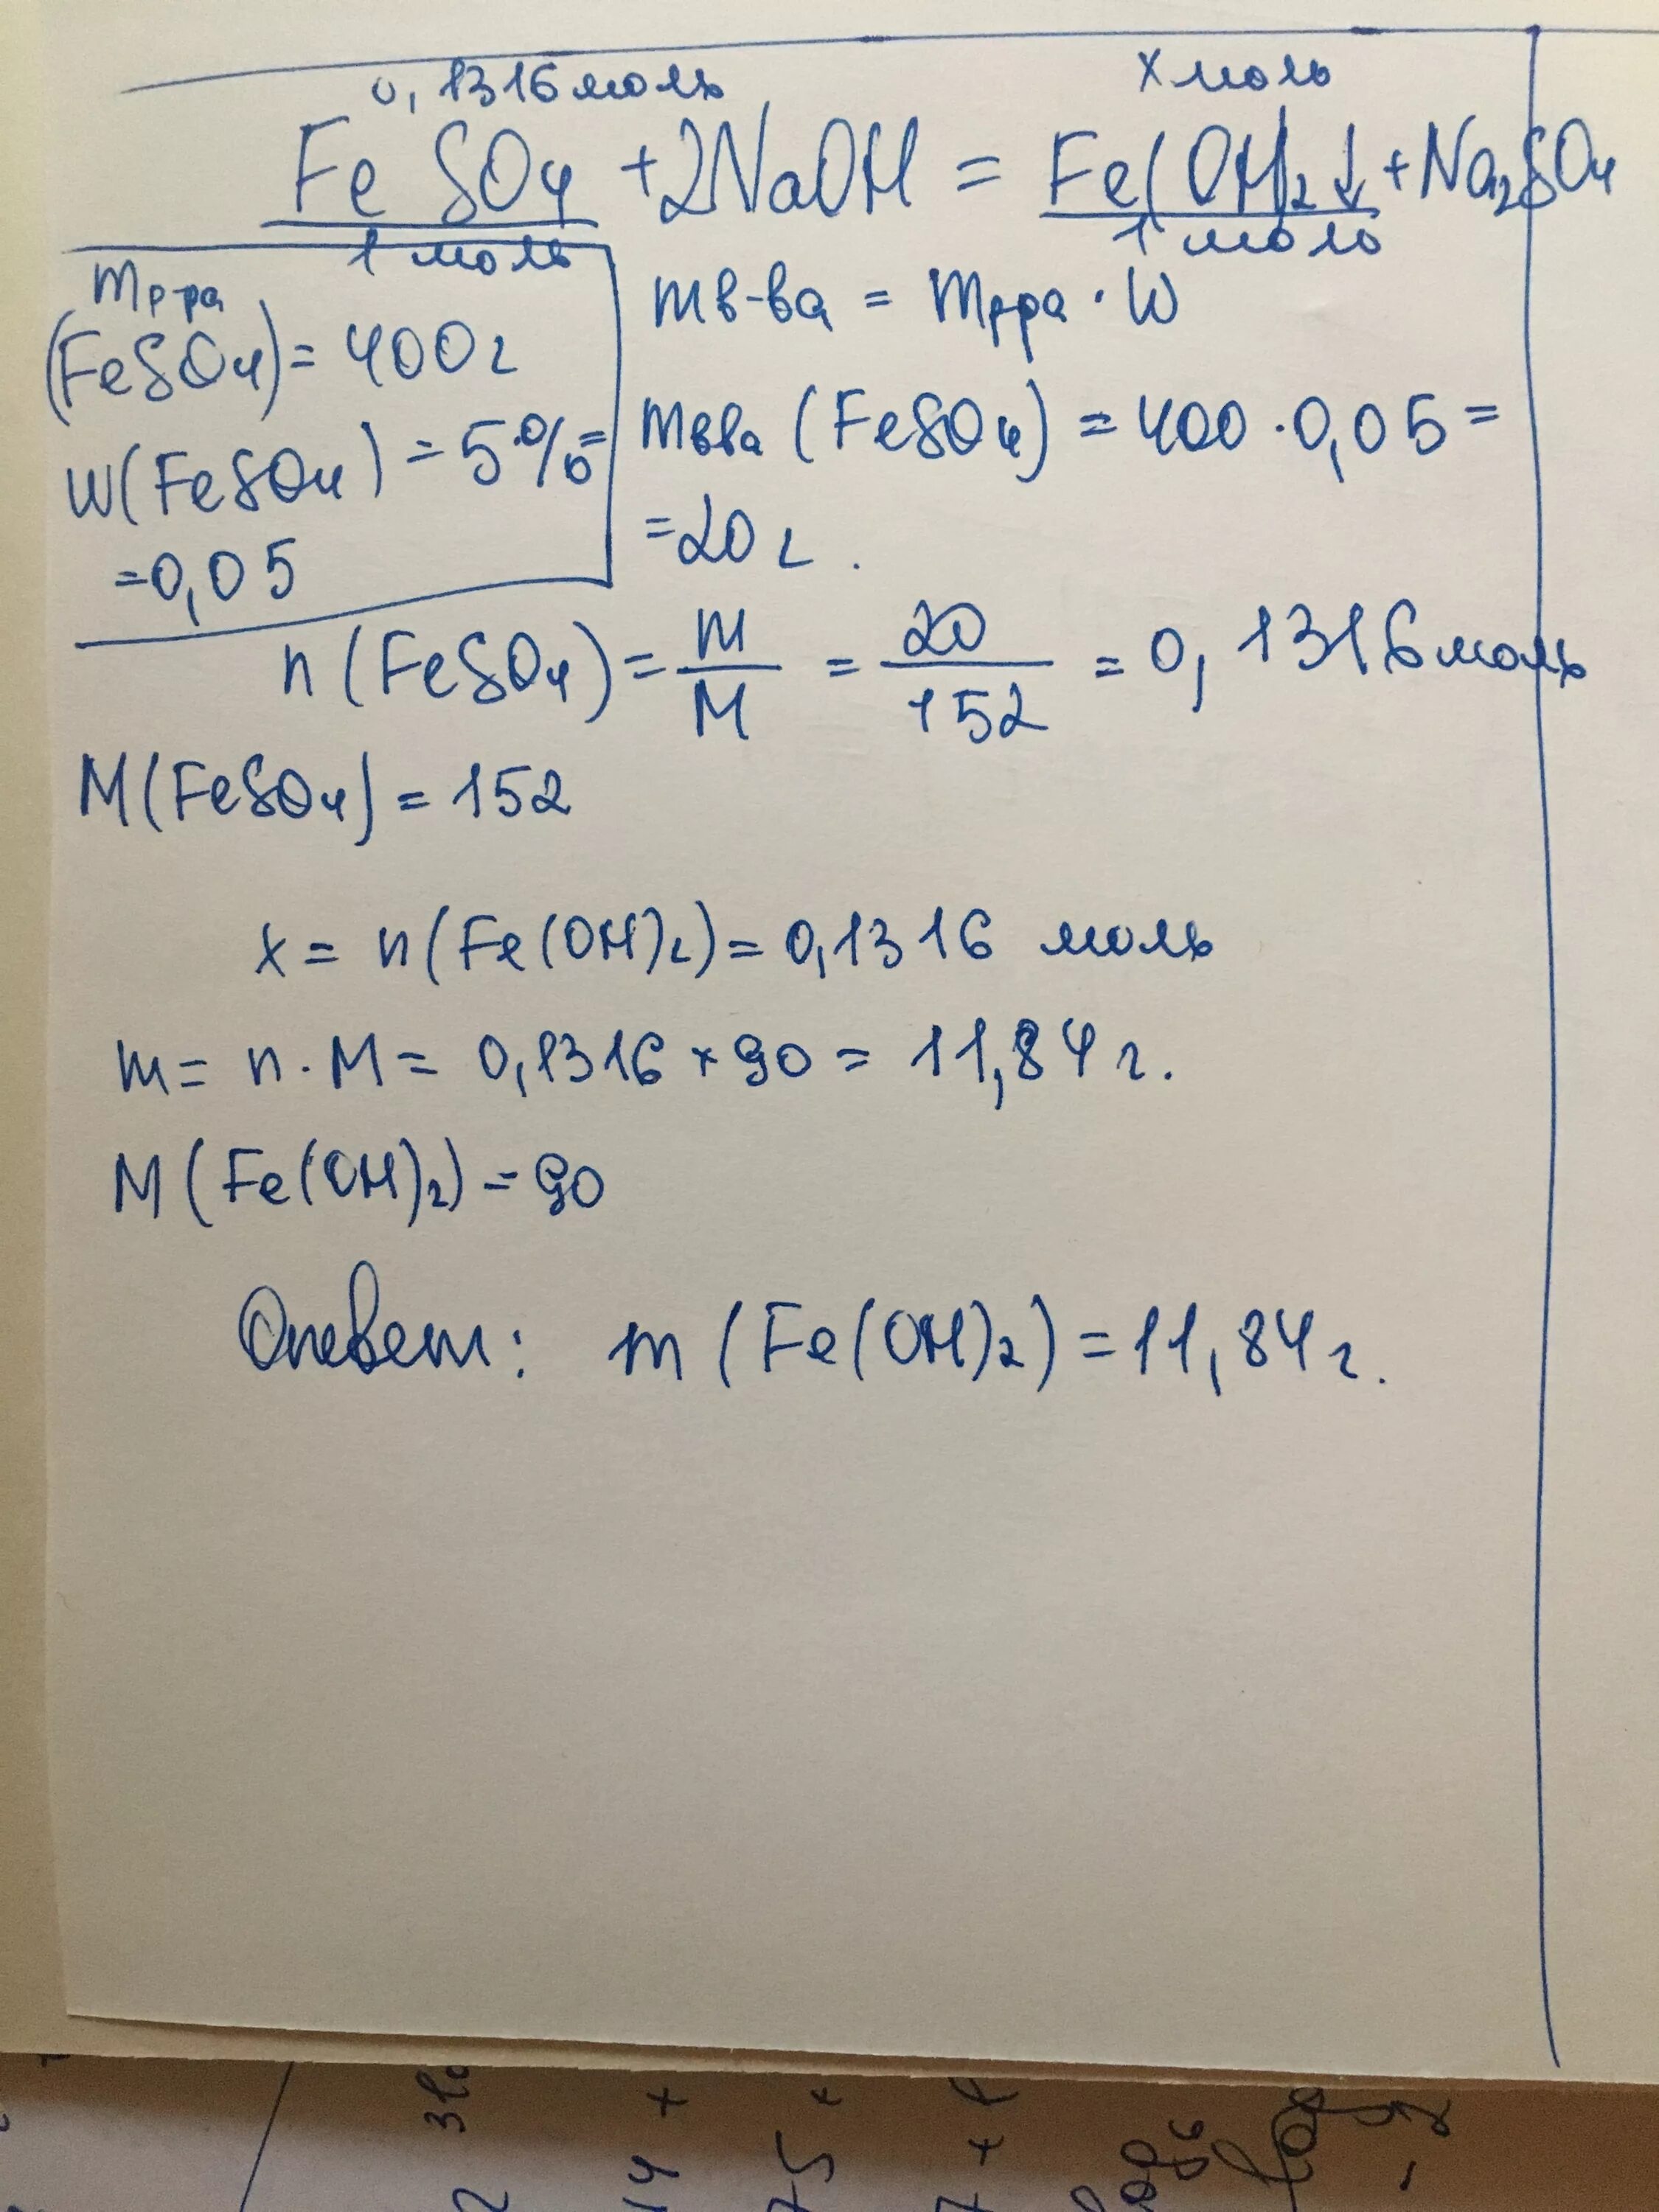 0,1316 моль x моль
FeSO4 + 2NaOH = Fe(OH)2↓ + Na2SO4
1 моль 1 моль
mр-ра
(FeSO4) = 400 г
W(FeSO4) = 5% =
= 0,05
mв-ва = mр-ра · W
mв-ва (FeSO4) = 400 · 0,05 =
= 20 г.
n(FeSO4) = m/M = 20/152 = 0,1316 моль
M(FeSO4) = 152
x = n(Fe(OH)2) = 0,1316 моль
m = n · M = 0,1316 × 90 = 11,84 г.
M(Fe(OH)2) = 90
Ответ: m(Fe(OH)2) = 11,84 г.